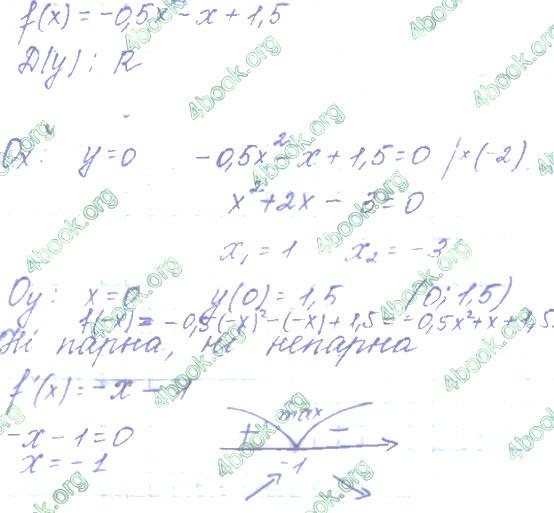 f(x) = -0,5x² - x + 1,5
D(y): R
Ox: y=0 -0,5x² - x + 1,5 = 0 /×(-2)
x² + 2x - 3 = 0
x₁ = 1 x₂ = -3
Oy: x=0 y(0) = 1,5 (0; 1,5)
f(-x) = -0,5(-x)² - (-x) + 1,5 = -0,5x² + x + 1,5
Ні парна, ні непарна
f'(x) = -x - 1
max
-x - 1 = 0
+ -
x = -1
-1
4book.org